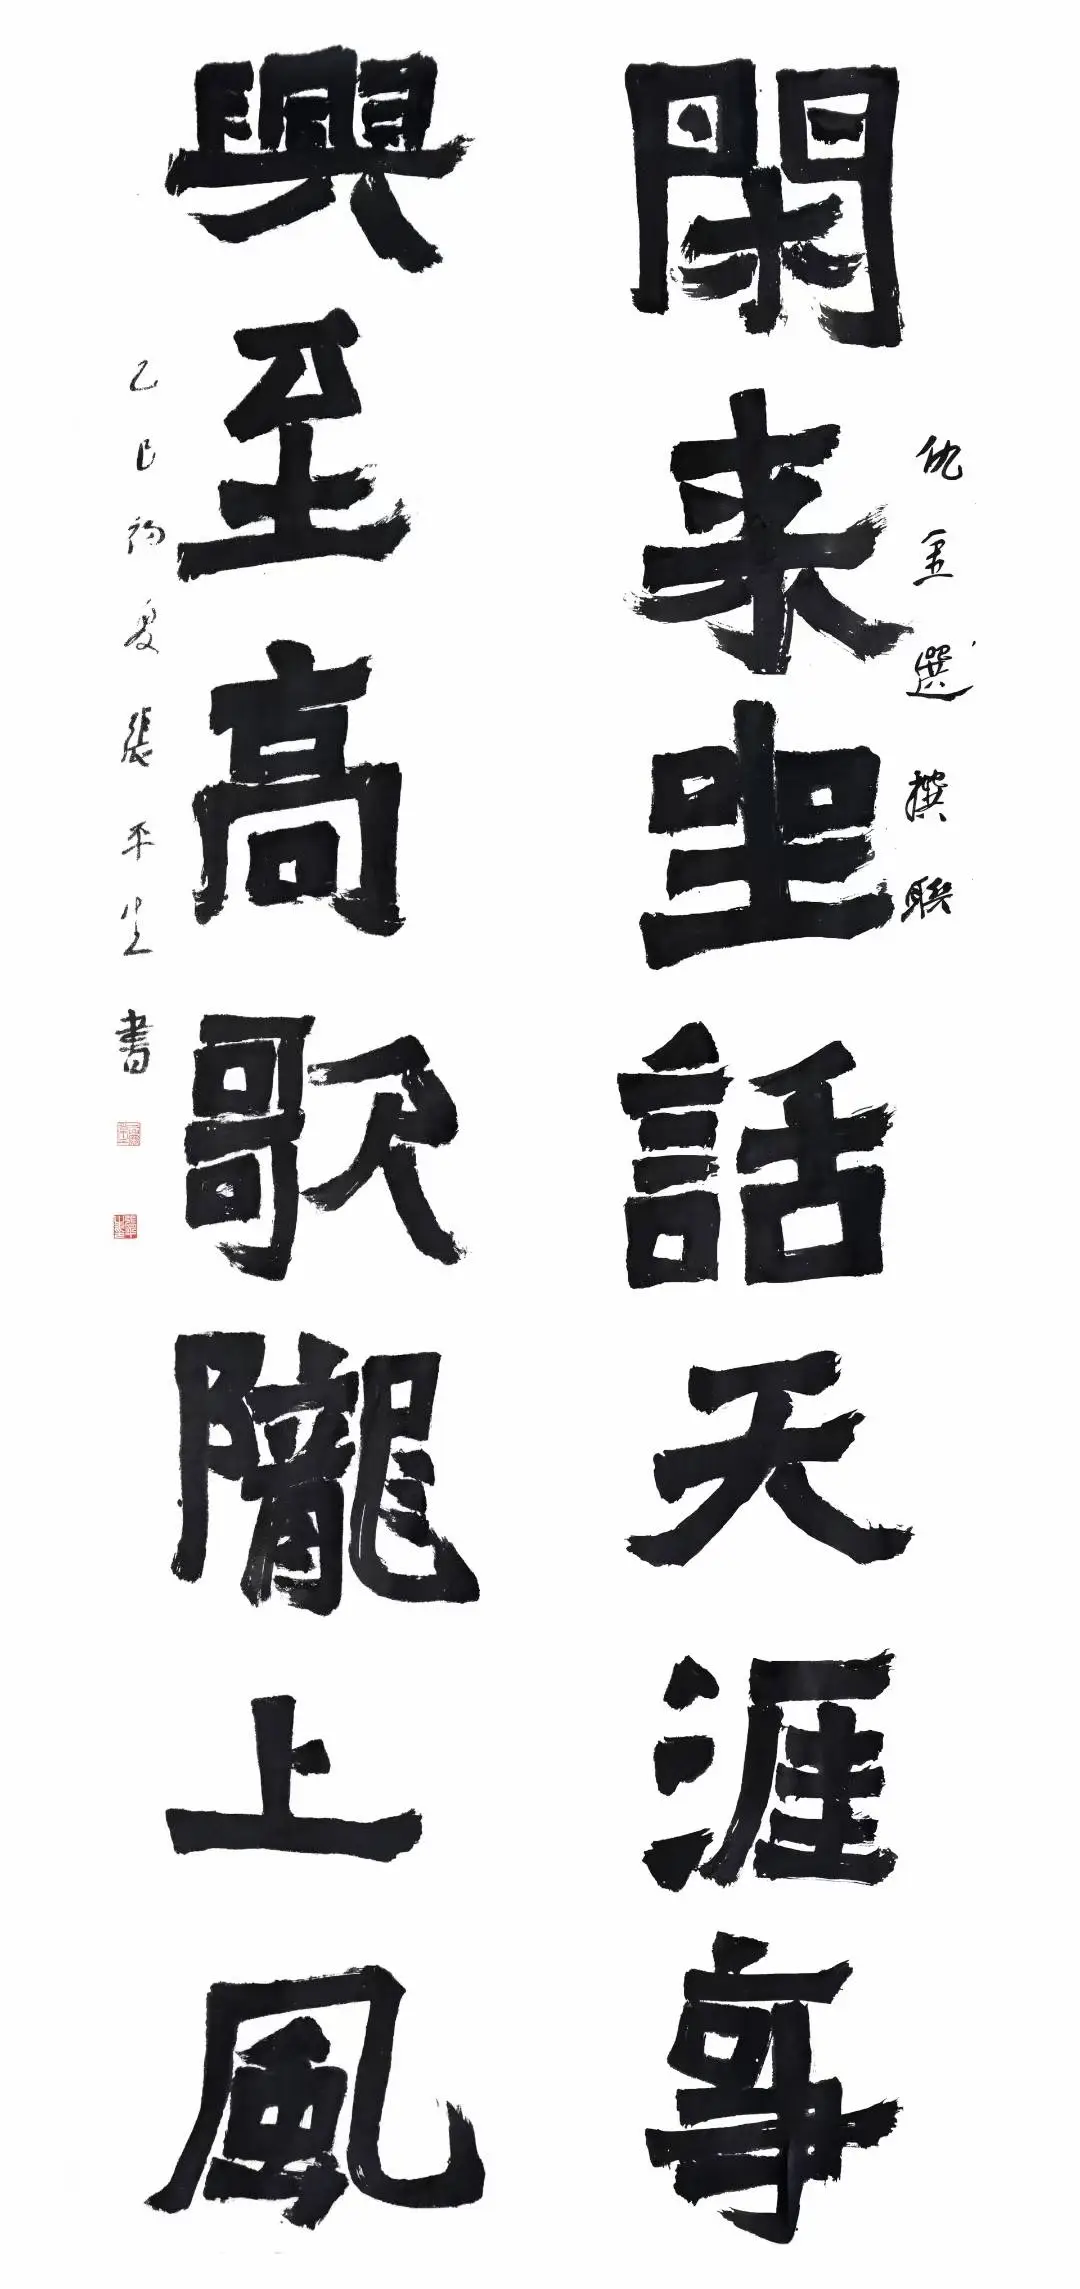 閑来坐話天涯事
仇金選撰聯
興至高歌隴上風
乙巳初夏張平生書